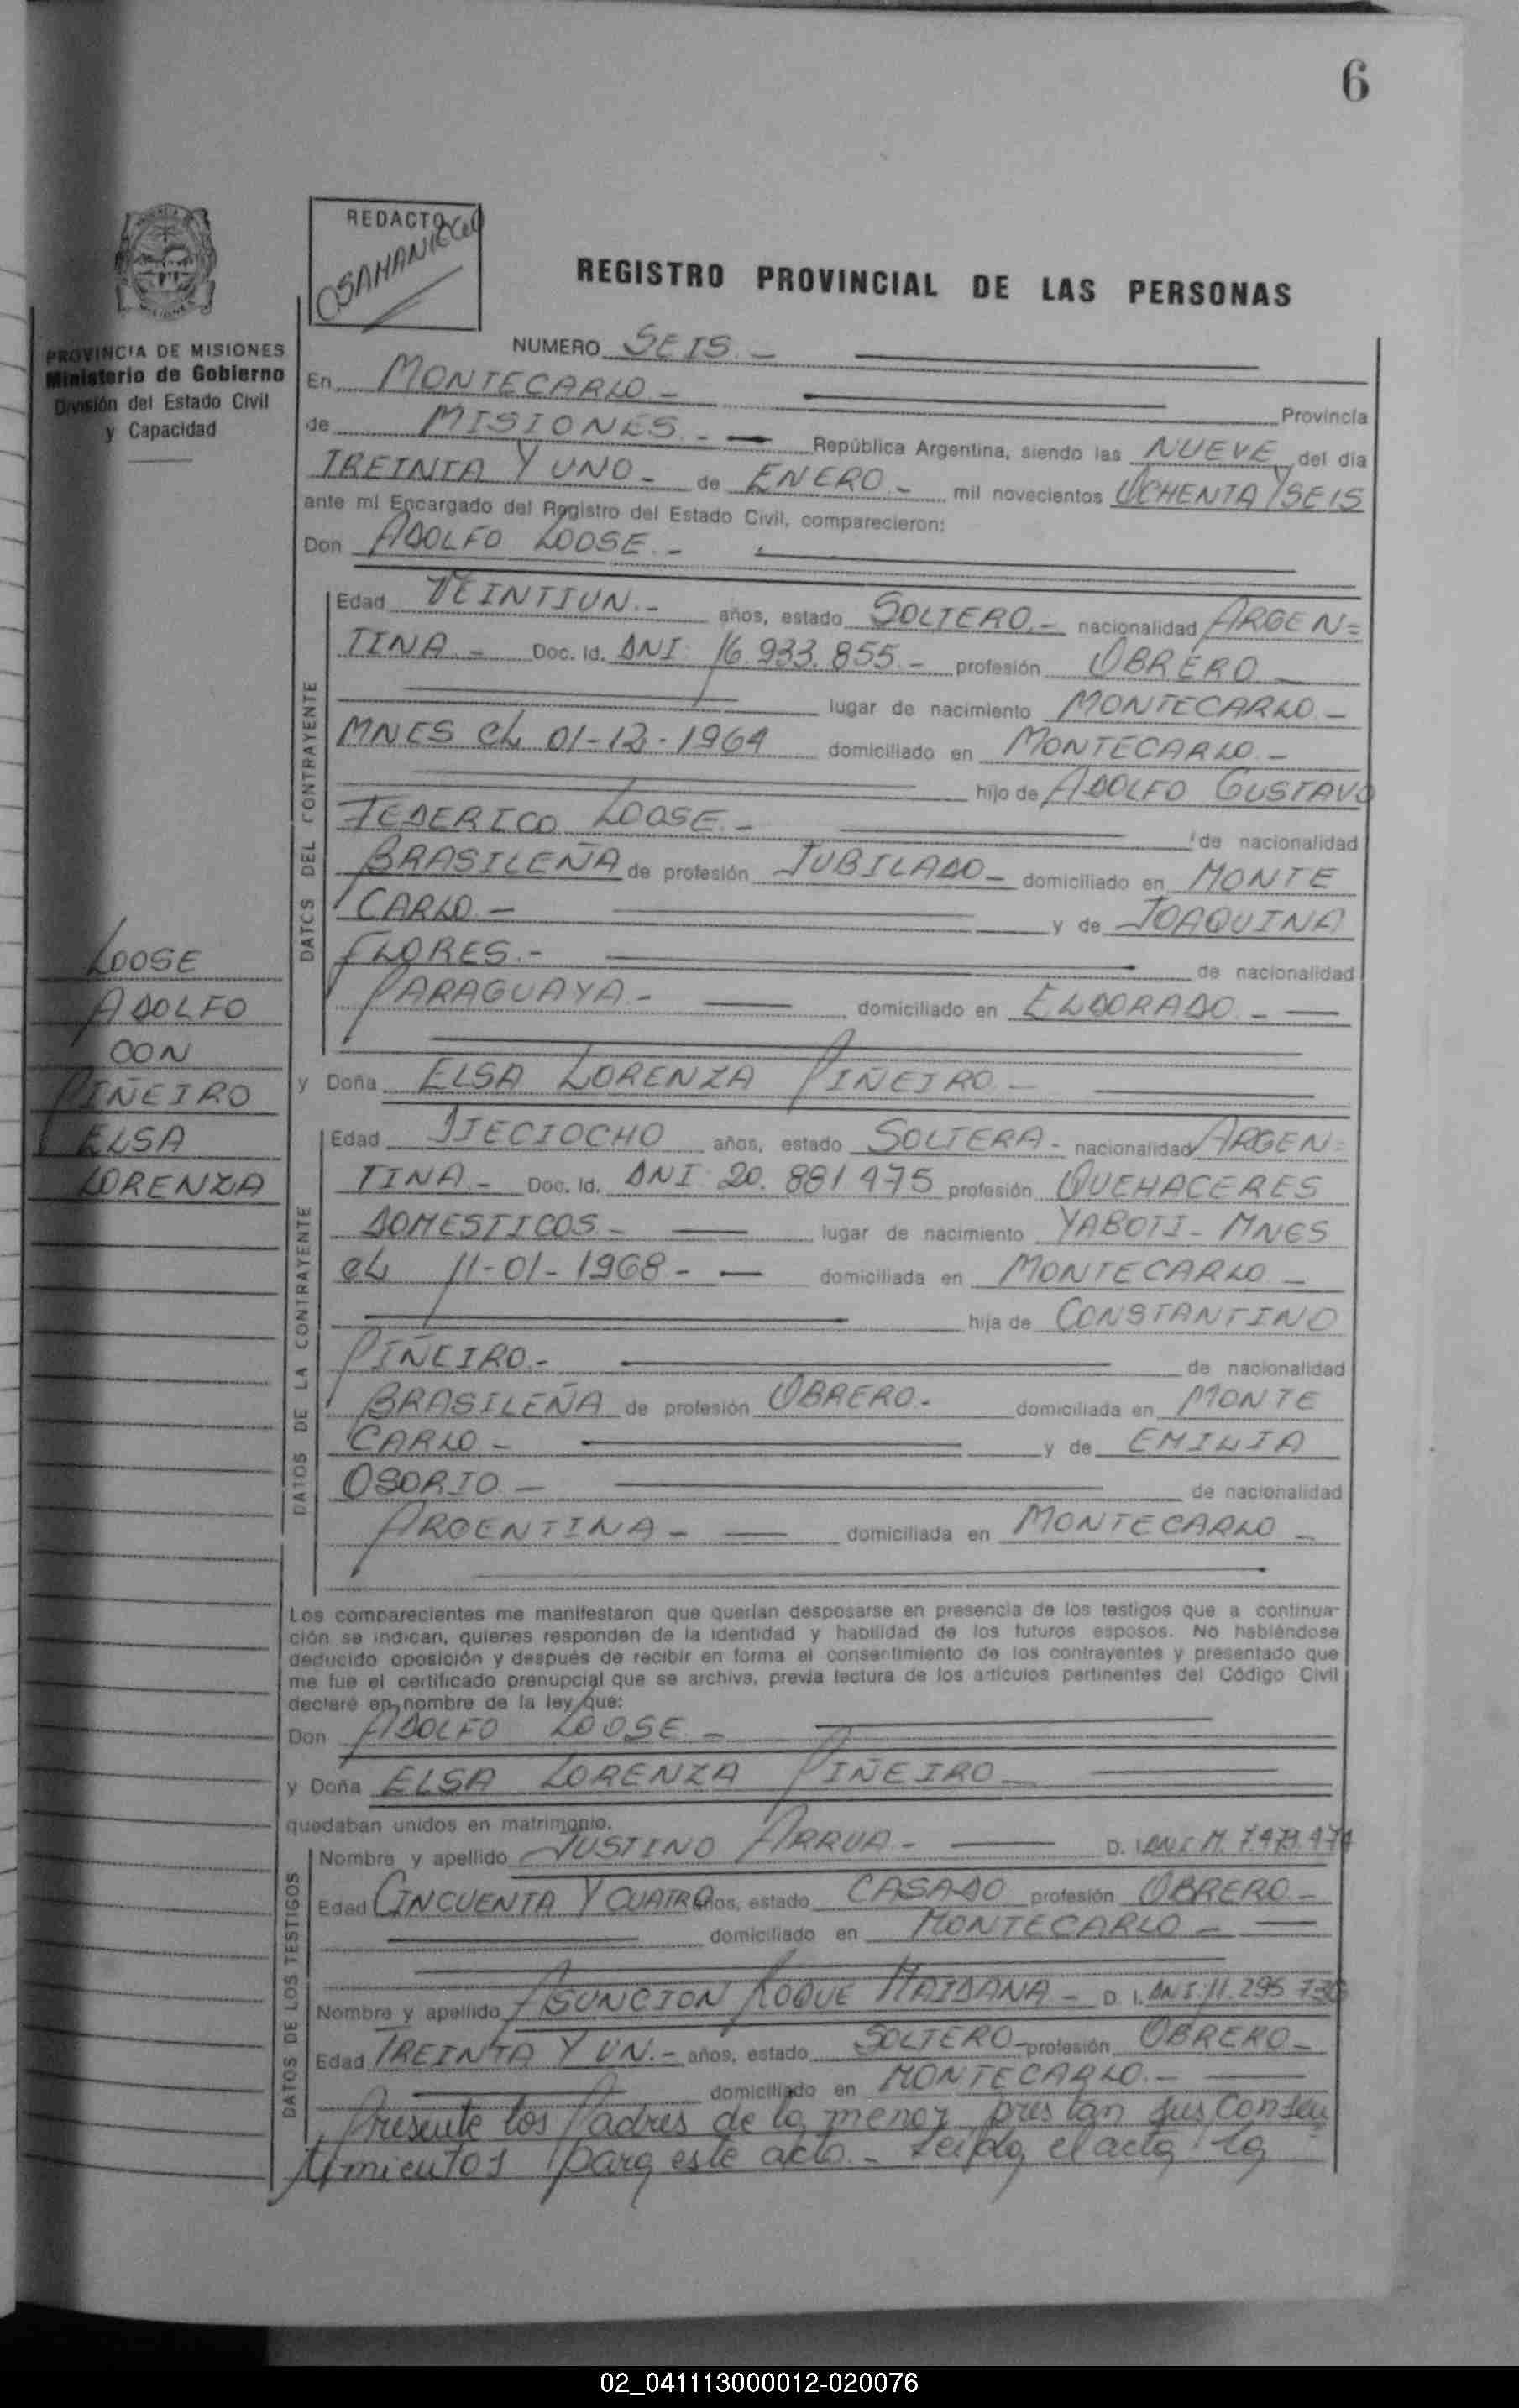 6
REDACTO
REGISTRO PROVINCIAL DE LAS PERSONAS
PROVINCIA DE MISIONES
Ministerio de Gobierno
División del Estado Civil
y Capacidad
NUMERO SEIS.-
En MONTECARLO - Provincia
de MISIONES.- República Argentina, siendo las NUEVE del día
TREINTA Y UNO - de ENERO.- mil novecientos OCHENTA Y SEIS
ante mí Encargado del Registro del Estado Civil, comparecieron:
Don ADOLFO LOOSE.-
DATOS DEL CONTRAYENTE
Edad VEINTIUN.- años, estado SOLTERO.- nacionalidad ARGEN=
TINA - Doc. Id. DNI: 16.933.855.- profesión OBRERO -
lugar de nacimiento MONTECARLO -
MNES el 01-12-1964 domiciliado en MONTECARLO -
hijo de ADOLFO GUSTAVO
FEDERICO LOOSE.- de nacionalidad
BRASILEÑA de profesión JUBILADO - domiciliado en MONTE
CARLO - y de JOAQUINA
FLORES.- de nacionalidad
PARAGUAYA - domiciliado en ELDORADO.-
y Doña ELSA LORENZA PIÑEIRO -
LOOSE
ADOLFO
CON
PIÑEIRO
ELSA
LORENZA
DATOS DE LA CONTRAYENTE
Edad DIECIOCHO años, estado SOLTERA - nacionalidad ARGEN=
TINA - Doc. Id. DNI: 20.881.475 profesión QUEHACERES
DOMESTICOS - lugar de nacimiento YABOTI - MNES
el 11-01-1968 - domiciliada en MONTECARLO -
hija de CONSTANTINO
PIÑEIRO - de nacionalidad
BRASILEÑA de profesión OBRERO - domiciliada en MONTE
CARLO - y de EMILIA
OSORIO - de nacionalidad
ARGENTINA - domiciliada en MONTECARLO -
Los comparecientes me manifestaron que querían desposarse en presencia de los testigos que a continua-
ción se indican, quienes responden de la identidad y habilidad de los futuros esposos. No habiéndose
deducido oposición y después de recibir en forma el consentimiento de los contrayentes y presentado que
me fue el certificado prenupcial que se archiva, previa lectura de los artículos pertinentes del Código Civil
declaré en nombre de la ley que:
Don ADOLFO LOOSE -
y Doña ELSA LORENZA PIÑEIRO -
quedaban unidos en matrimonio.
DATOS DE LOS TESTIGOS
Nombre y apellido JUSTINO ARRUA - D. I.
Edad CINCUENTA Y CUATRO años, estado CASADO profesión OBRERO -
domiciliado en MONTECARLO -
Nombre y apellido ASUNCION ROQUE MAIDANA - D. I. DNI: 11.295.736
Edad TREINTA Y UN.- años, estado SOLTERO - profesión OBRERO -
domiciliado en MONTECARLO.-
Presente los Padres de la menor prestan sus consen
timientos para este acto.- Leída el acta la
02_041113000012-020076